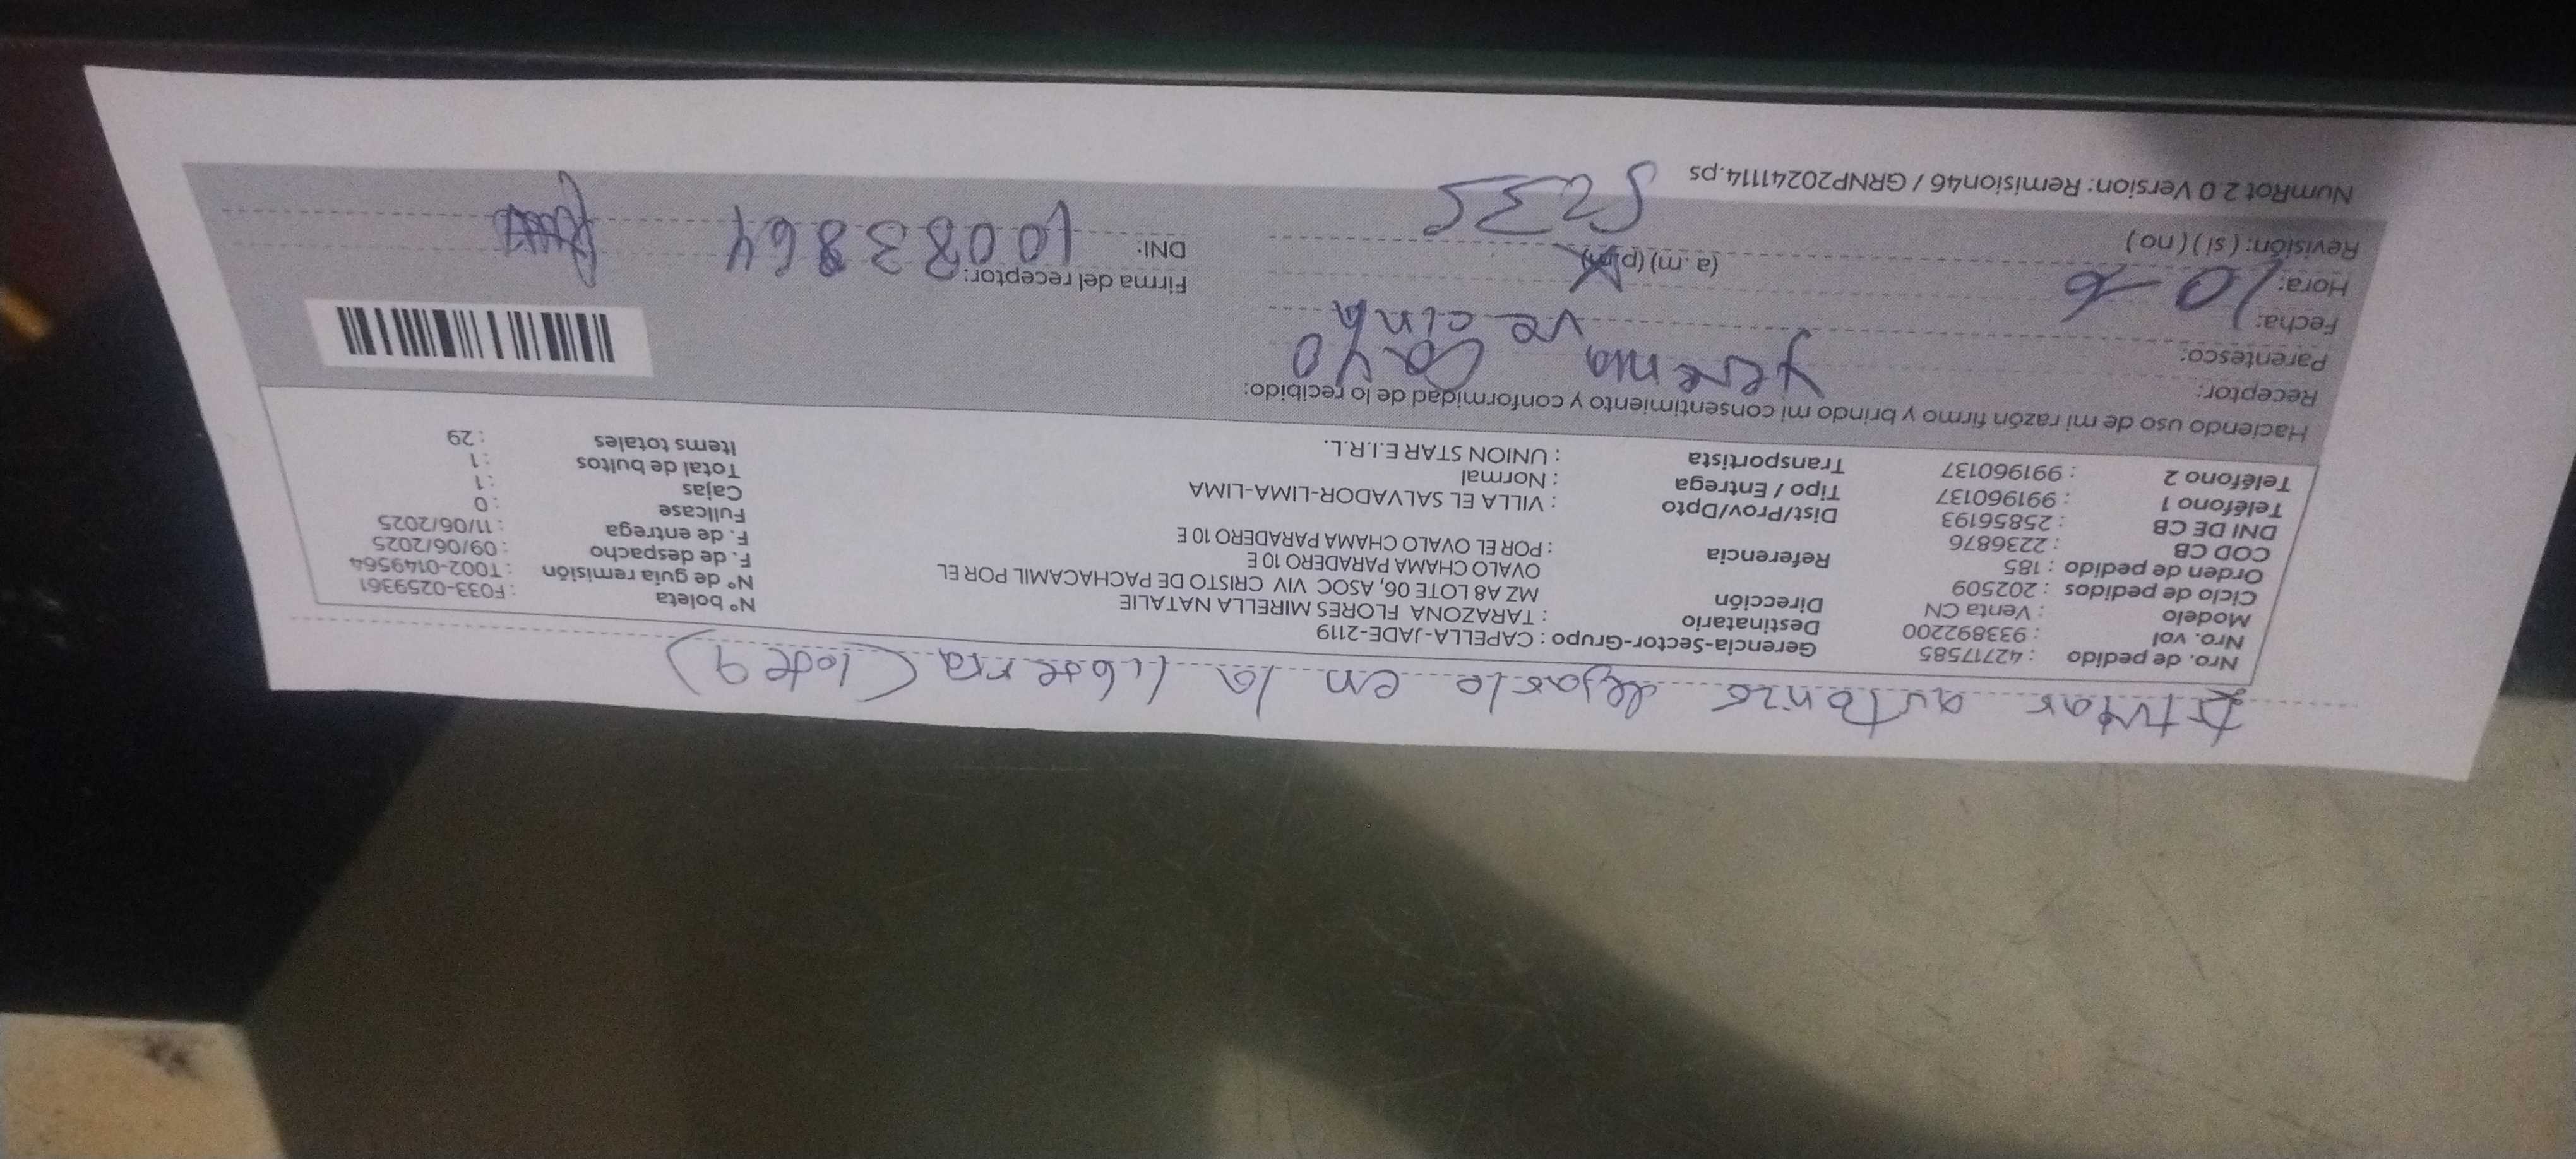 titular autorizo dejarlo en la libreria (lote 9)
Nro. de pedido : 42717585
Nro. vol : 933892200
Modelo : Venta CN
Ciclo de pedidos : 202509
Orden de pedido : 185
COD CB : 2236876
DNI DE CB : 25856193
Teléfono 1 : 991960137
Teléfono 2 : 991960137
Gerencia-Sector-Grupo : CAPELLA-JADE-2119
Destinatario : TARAZONA FLORES MIRELLA NATALIE
Dirección MZ A8 LOTE 06, ASOC VIV CRISTO DE PACHACAMIL POR EL
OVALO CHAMA PARADERO 10 E
Referencia : POR EL OVALO CHAMA PARADERO 10 E
Dist/Prov/Dpto : VILLA EL SALVADOR-LIMA-LIMA
Tipo / Entrega : Normal
Transportista : UNION STAR E.I.R.L.
N° boleta : F033-0259361
N° de guia remisión : T002-0149564
F. de despacho : 09/06/2025
F. de entrega : 11/06/2025
Fullcase : 0
Cajas : 1
Total de bultos : 1
Items totales : 29
Haciendo uso de mi razón firmo y brindo mi consentimiento y conformidad de lo recibido:
Receptor: yesenia Cayo
Parentesco: vecina
Fecha: 10 6
Hora: (a.m) (p.m) 5235
Revisión: ( si ) ( no )
Firma del receptor:
DNI: 10083864
NumRot 2 0 Version: Remision46 / GRNP20241114.ps